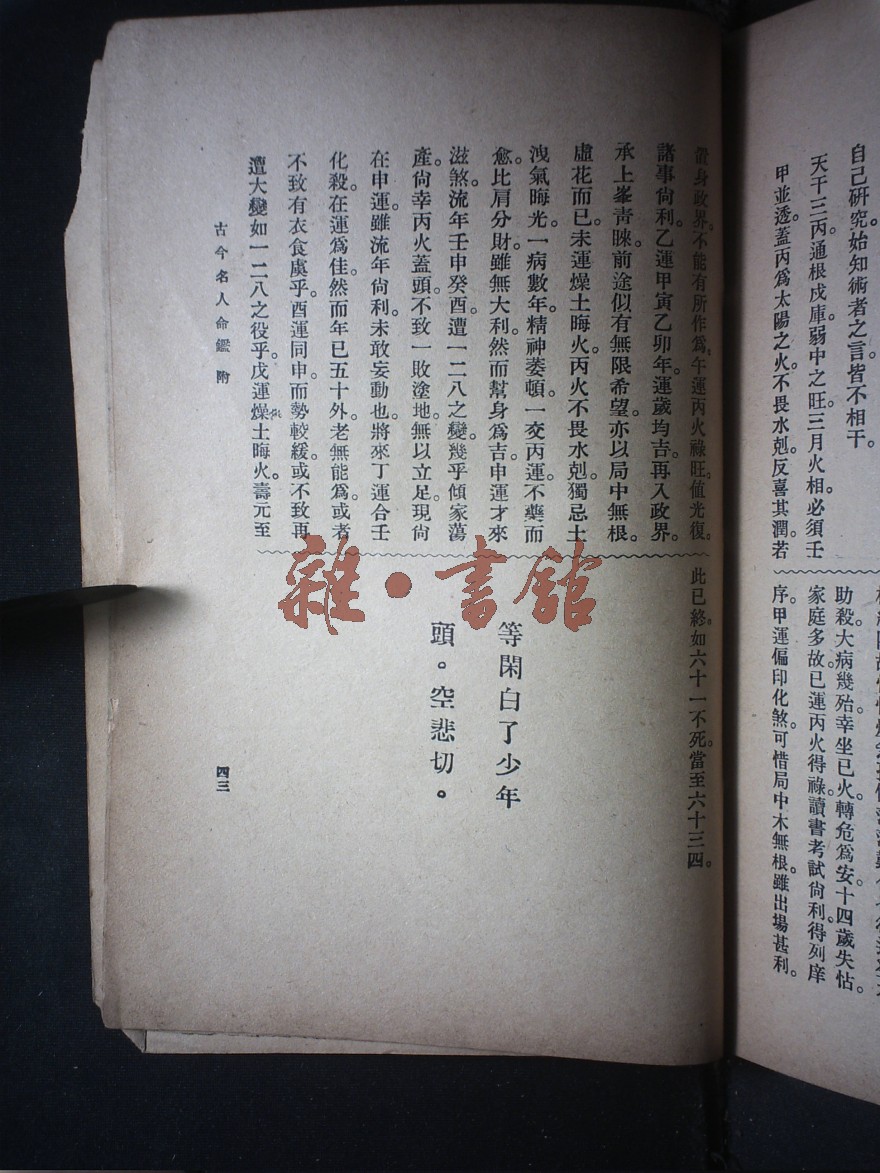 自己硏究始知術者之言皆不相干。
天干三丙通根戌庫弱中之旺三月火相必須壬
甲並透蓋丙爲太陽之火不畏水剋。反喜其潤。若
助殺。大病幾殆幸坐巳火轉危爲安。十四歲失怙。
家庭多故巳運丙火得祿。讀書考試尙利。得列庠
序。甲運偏印化煞。可惜局中木無根。雖出場甚利。
置身政界不能有所作爲。午運丙火祿旺。值光復。
諸事尙利乙運甲寅乙卯年運歲均吉。再入政界。
承上峯靑睞。前途似有無限希望。亦以局中無根。
虛花而已未運燥土晦火。丙火不畏水剋。獨忌土
洩氣晦光。一病數年。精神萎頓。一交丙運不藥而
愈。比肩分財。雖無大利。然而幫身爲吉申運才來
滋煞。流年壬申癸酉。遭一二八之變。幾乎傾家蕩
產。尙幸丙火蓋頭。不致一敗塗地。無以立足。現尙
在申運。雖流年尙利。未敢妄動也。將來丁運合壬
化殺。在運爲佳。然而年已五十外。老無能爲。或者
不致有衣食虞乎。酉運同申。而勢較緩。或不致再
遭大變如一二八之役乎。戊運燥土晦火。壽元至
此已終。如六十一不死。當至六十三四。
等閑白了少年
頭。空悲切。
古今名人命鑑 附
四三
雜·書館